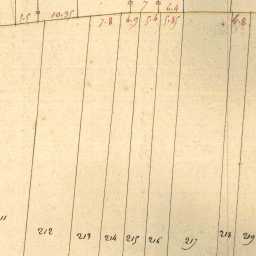 7 6.4
2.5 10.95 7.8 6.9 5.6 5.85 6.8
11
212 213 214 215 216 217 218 219